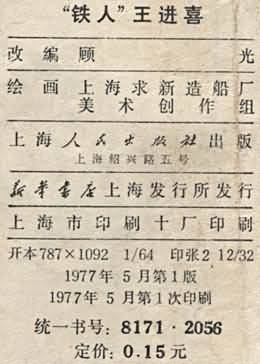 “铁人”王进喜
改编 顾光
绘画 上海求新造船厂
美术创作组
上海人民出版社出版
上海绍兴路五号
新华书店上海发行所发行
上海市印刷十厂印刷
开本787×1092 1/64 印张2 12/32
1977年5月第1版
1977年5月第1次印刷
统一书号：8171·2056
定价：0.15元